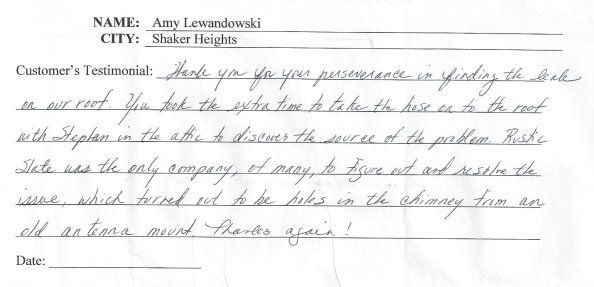 NAME: Amy Lewandowski
CITY: Shaker Heights
Customer's Testimonial: Thank you for your perseverance in finding the leak
on our roof. You took the extra time to take the hose on to the roof
with Stephan in the attic to discover the source of the problem. Rustic
Slate was the only company, of many, to figure out and resolve the
issue, which turned out to be holes in the chimney from an
old antenna mount. Thanks again!
Date: